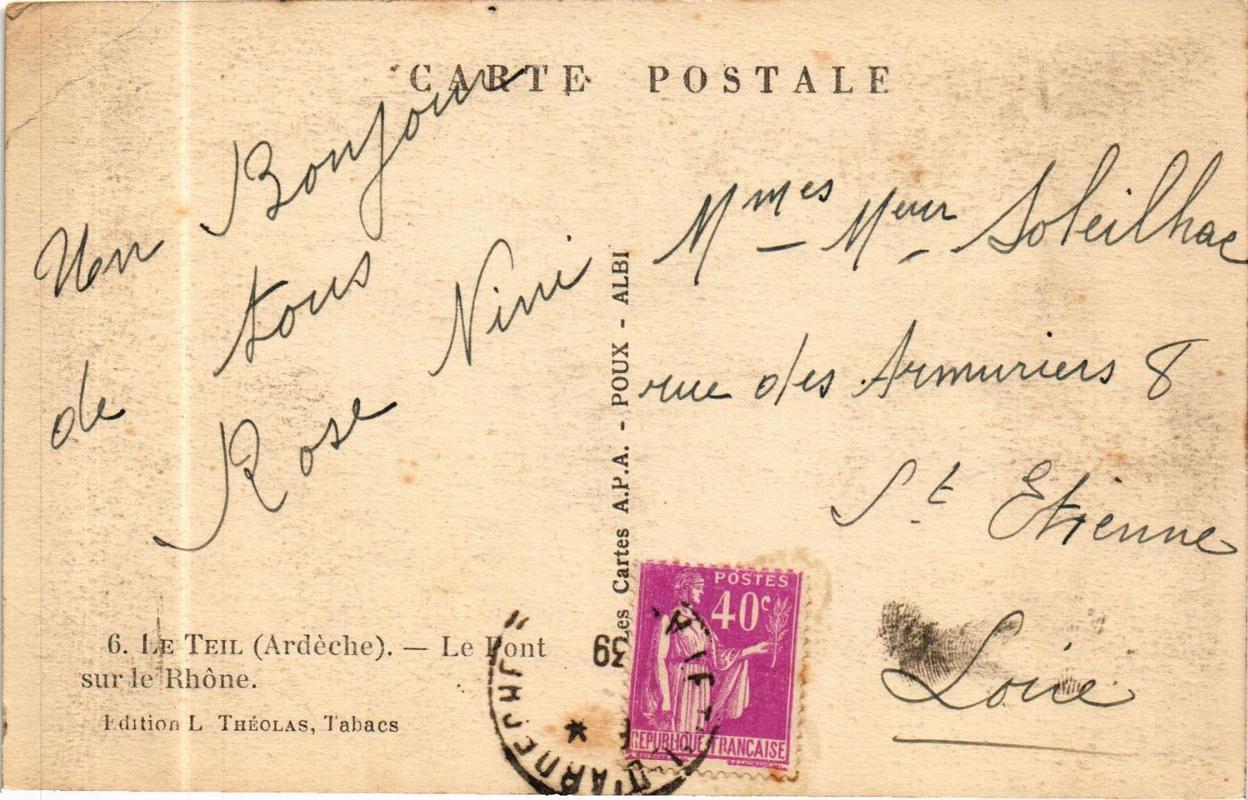 CARTE POSTALE
Un Bonjour
de tous
Rose Nini
Mmes Meur Soleilhac
rue des Armuriers 8
St Etienne
Loire
Les Cartes A.P.A. - POUX - ALBI
6. LE TEIL (Ardèche). — Le Pont
sur le Rhône.
Edition L. THÉOLAS, Tabacs
POSTES
40c
REPUBLIQUE FRANÇAISE
39